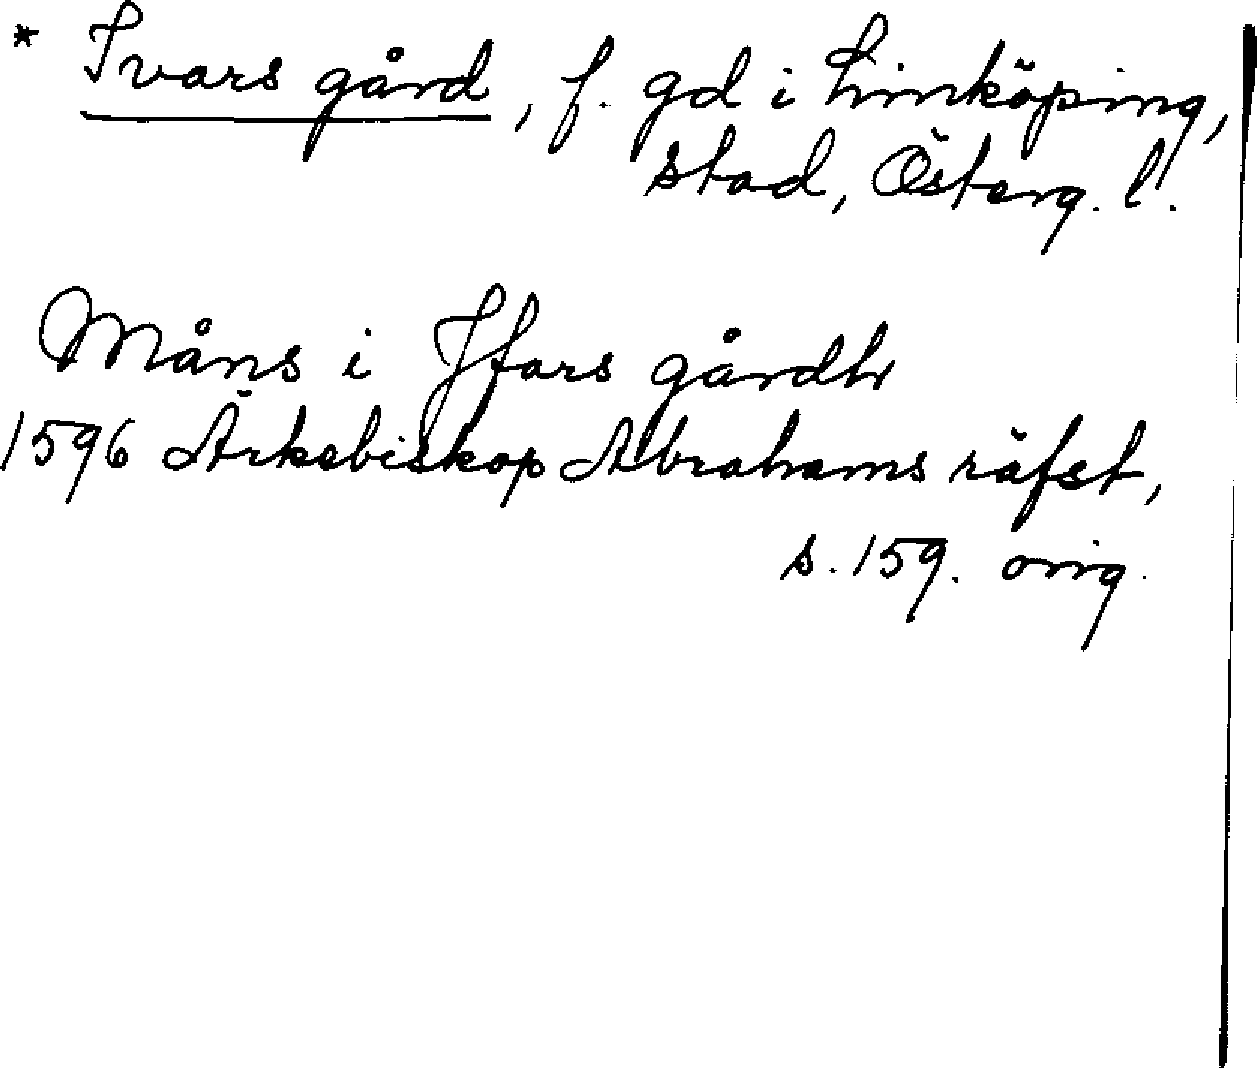 * Ivars gård, f. gd i Linköping,
stad, Österg. l.
Måns i Jfars gårdh
1596 Ärkebiskop Abrahams räfst,
s. 159. orig.